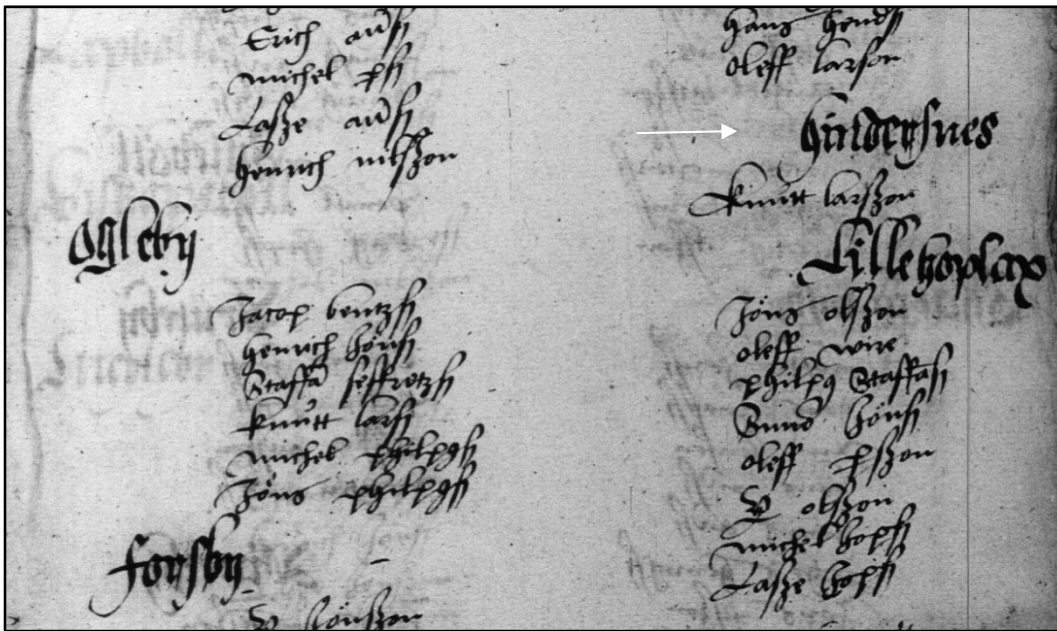 Erich andſſ
michel pſſ
Laſze andſſ
henrich nilſzon
Ogleby
Jacop bentzſſ
henrich Jönſſ
Staffā ſeffretzſſ
knutt larſſ
michel philpqſſ
Jöns philpqſſ
forſby
P Jönſzon
hans hendſſ
oleff larſon
hinderſnes
knutt larſzon
Lillehoplax
Jöns olſzon
oleff wire
philpq Staffāſſ
Sund Jönſſ
oleff pſzon
P olſzon
michel hopſſ
Laſze hopſſ